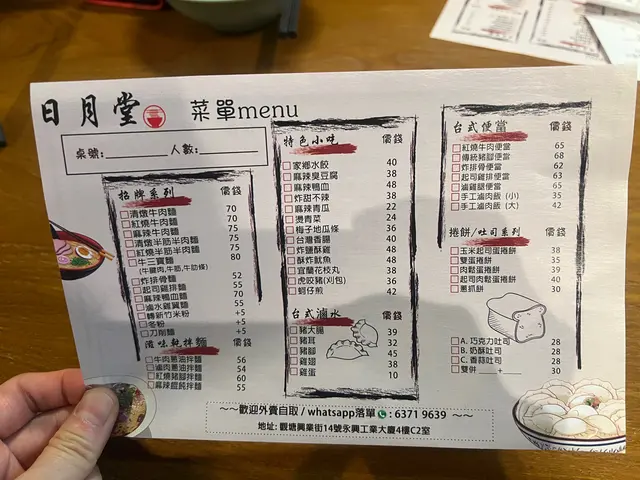 日月堂
菜單menu
桌號:__________人數:__________
招牌系列 價錢
清燉牛肉麵 70
紅燒牛肉麵 70
麻辣牛肉麵 70
清燉半筋半肉麵 75
紅燒半筋半肉麵 75
三寶麵 80
(牛腱肉,牛筋,牛肋條)
炸排骨麵 52
起司雞排麵 55
麻辣鴨血麵 70
滷水雞翼麵 55
轉新竹米粉 +5
冬粉 +5
刀削麵 +5
滋味乾拌麵 價錢
牛肉蔥油拌麵 56
滷肉蔥油拌麵 54
紅燒豬腳拌麵 60
麻辣餛飩拌麵 55
特色小吃 價錢
家鄉水餃 40
麻辣臭豆腐 38
麻辣鴨血 48
炸甜不辣 38
麻辣青瓜 22
燙青菜 24
梅子地瓜條 36
台灣香腸 40
炸鹽酥雞 48
酥炸魷魚 48
宜蘭花枝丸 38
虎咬豬(刈包) 36
蚵仔煎 42
台式滷水 價錢
豬大腸 39
豬耳 32
豬腳 45
雞翅 38
雞蛋 10
台式便當 價錢
紅燒牛肉便當 65
傳統豬腳便當 68
炸排骨便當 62
起司雞排便當 63
滷雞腿便當 65
手工滷肉飯 (小) 35
手工滷肉飯 (大) 42
捲餅/吐司系列 價錢
玉米起司蛋捲餅 38
雙蛋捲餅 35
肉鬆蛋捲餅 39
起司肉鬆蛋捲餅 40
蔥抓餅 30
A. 巧克力吐司 28
B. 奶酥吐司 28
C. 香蒜吐司 28
雙併 ____+____ 30
~~歡迎外賣自取 / whatsapp落單 : 6371 9639 ~~
地址: 觀塘興業街14號永興工業大廈4樓C2室